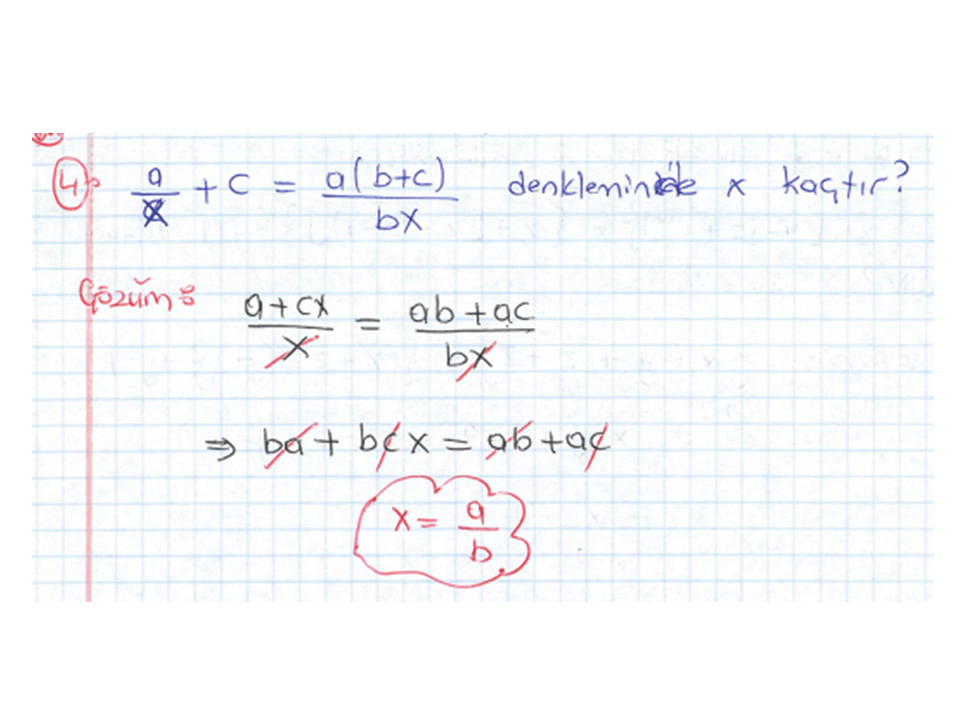 4) a/x + c = a(b+c)/bx denkleminde x kaçtır?
Çözüm: a+cx/x = ab+ac/bx
⇒ ba + bcx = ab + ac
x = a/b